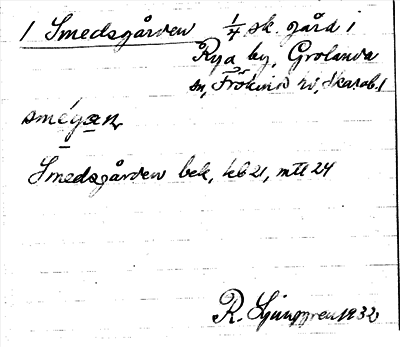 1 Smedsgården 1/4 sk. gård i
Rya by, Grolanda
sn, Frökinds hd, Skarab. l
smégæn,
Smedsgården bek, kb 21, mtl 24
R. Ljunggren 1932